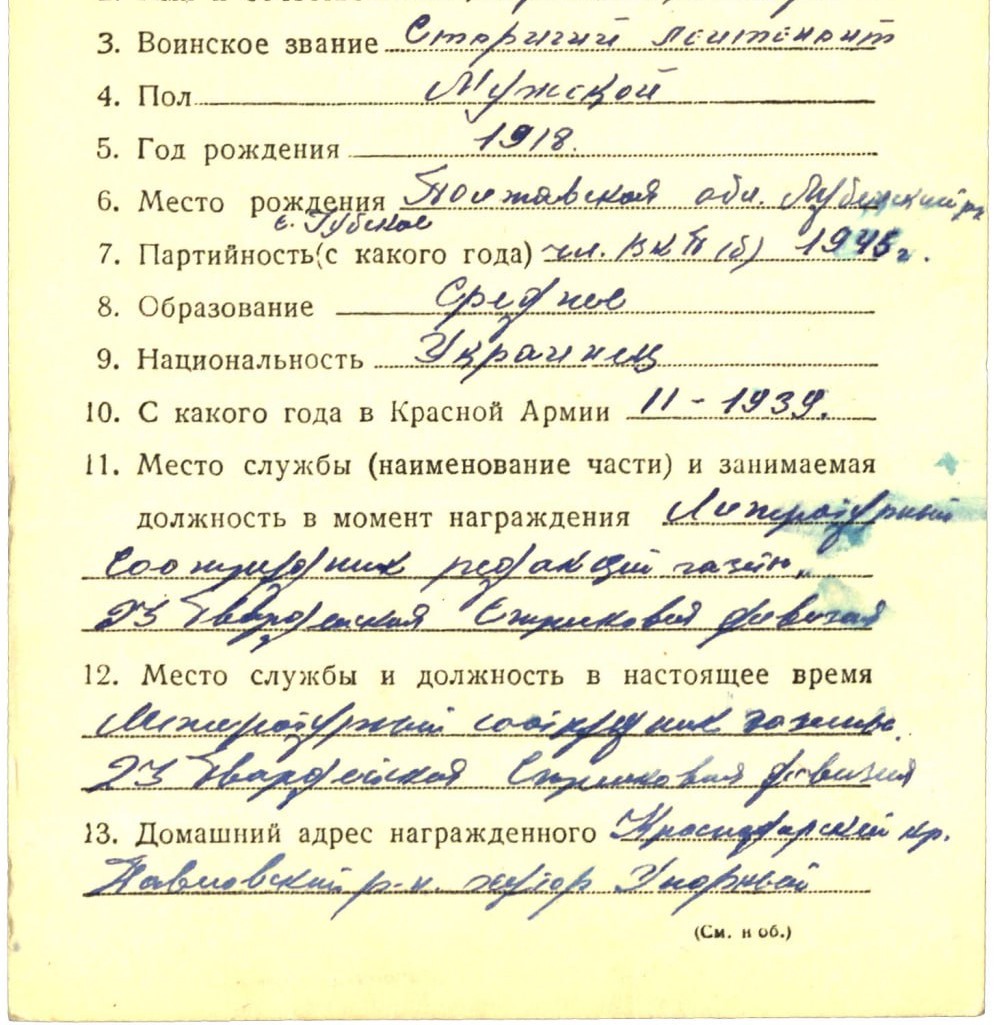 3. Воинское звание Старший лейтенант
4. Пол Мужской
5. Год рождения 1918.
6. Место рождения Полтавская обл. Лубенский рн
с. Губское
7. Партийность (с какого года) чл. ВКП(б) 1945г.
8. Образование Среднее
9. Национальность Украинец
10. С какого года в Красной Армии 11-1939.
11. Место службы (наименование части) и занимаемая
должность в момент награждения Литературный
сотрудник редакции газеты
23 Гвардейская Стрелковая дивизия
12. Место службы и должность в настоящее время
Литературный сотрудник газеты
23 Гвардейская Стрелковая дивизия
13. Домашний адрес награжденного Краснодарский кр.
Павловский р-н. хутор Упорный
(См. н об.)